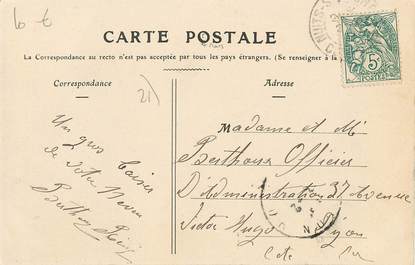 10 €
CARTE POSTALE
La Correspondance au recto n'est pas acceptée par tous les pays étrangers. (Se renseigner à la
Correspondance
Adresse
21)
Un gros baiser
de votre
Berthoux
Madame et M
Berthoux Officier
D'Administration 37 Avenue
Victor Hugo Lyon
5c
POSTES